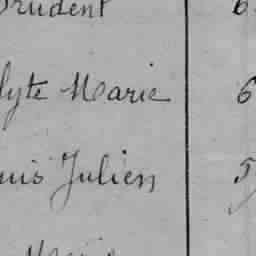 Prudent 6
lyte Marie 6
uis Julien 5
Marie